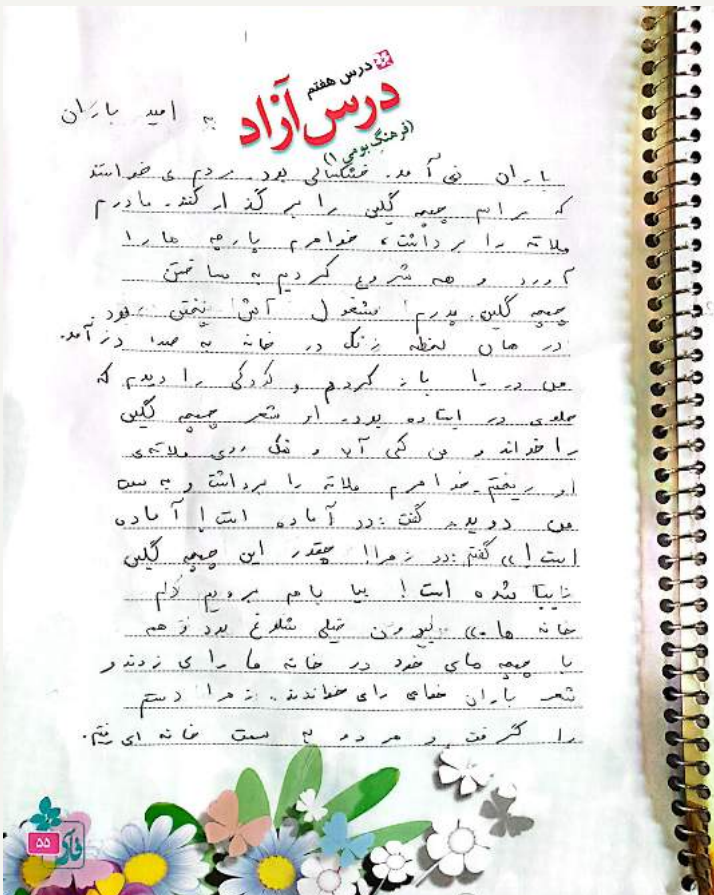 درس هفتم
درس آزاد
(فرهنگ بومی ۱)
به امید باران
باران نمی آمد. خشکسالی بود. مردم می خواستند
که مراسم چمچه گلین را برگذار کنند. مادرم
ملاقه را برداشت، خواهرم پارچه ها را
آورد و همه شروع کردیم به ساختن
چمچه گلین. پدرم مشغول آش پختن بود
در همان لحظه زنگ در خانه به صدا در آمد.
من در را باز کردم و کودکی را دیدم که
جلوی در ایستاده بود. او شعر چمچه گلین
را خواند و من کمی آب و نمک روی ملاقه ی
او ریختم. خواهرم ملاقه را برداشت و به سمت
من دوید. گفت :«آماده است! آماده
است!» گفتم :«زهرا! چقدر این چمچه گلین
زیبا شده است! بیا باهم برویم دم
خانه ها.» بیرون خیلی شلوغ بود و همه
با چمچه های خود در خانه ها را می زدند و
شعر باران خواهی را می خواندند. زهرا دستم
را گرفت و هر دو به سمت خانه ای رفتیم.
۵۵